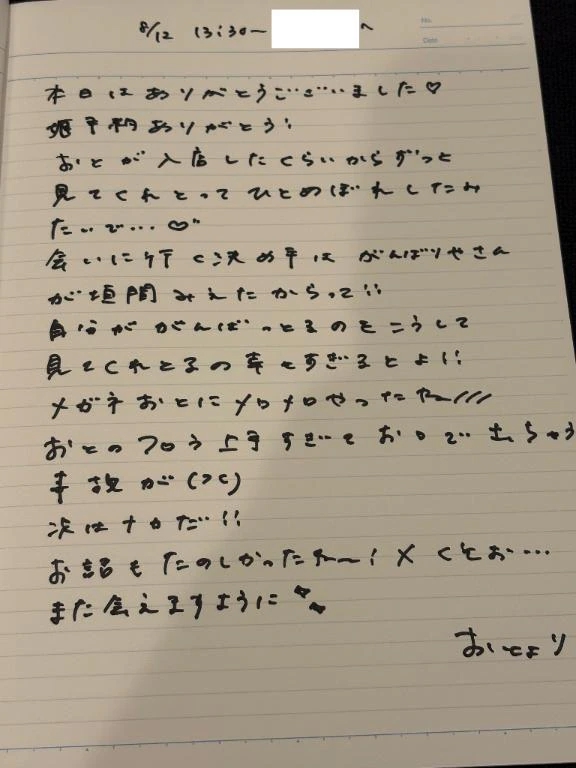 8/12 13:30〜 へ
No.
Date
本日はありがとうございました♡
姫予約ありがとう!
おとが入店したくらいからずっと
見てくれとってひとめぼれしたみ
たいで…♡
会いに行く決め手はがんばりやさん
が垣間みえたからって!!
自分ががんばっとるのをこうして
見てくれとるの幸せすぎるとよ!!
メガネおとにメロメロやったね〜///
おとのフロう上手すぎてお口で出ちゃう
事故が(><)
次はナカだ!!
お話もたのしかったね〜!メくそお…
また会えますように
おとより